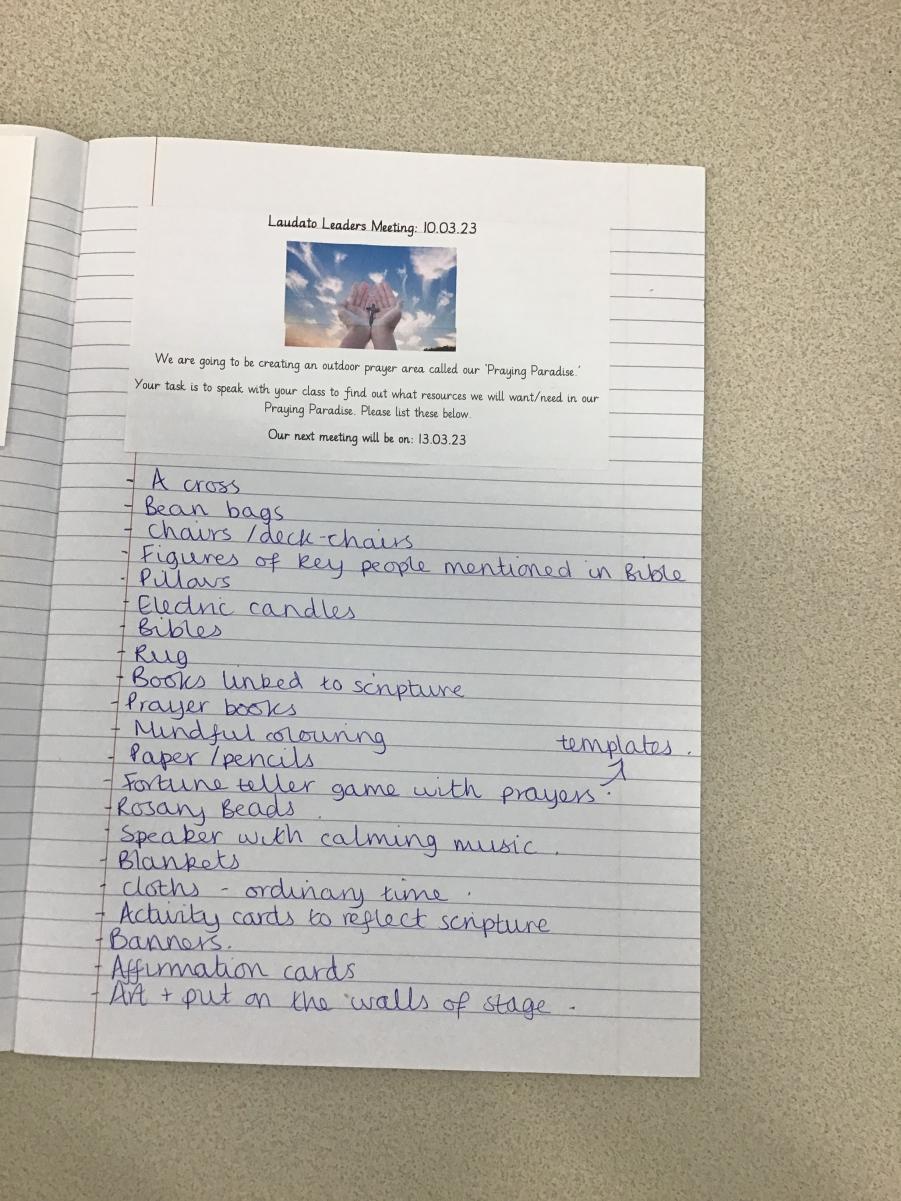 Laudato Leaders Meeting: 10.03.23
We are going to be creating an outdoor prayer area called our 'Praying Paradise.'
Your task is to speak with your class to find out what resources we will want/need in our
Praying Paradise. Please list these below.
Our next meeting will be on: 13.03.23
- A cross
- Bean bags
- Chairs /deck-chairs
- Figures of key people mentioned in Bible
- Pillars
- Electric candles
- Bibles
- Rug
- Books linked to scripture
- Prayer books
- Mindful colouring
templates.
- Paper /pencils
- Fortune teller game with prayers.
- Rosary Beads.
- Speaker with calming music.
- Blankets
- Cloths - ordinary time.
- Activity cards to reflect scripture
- Banners.
- Affirmation cards
- Art + put on the walls of stage.